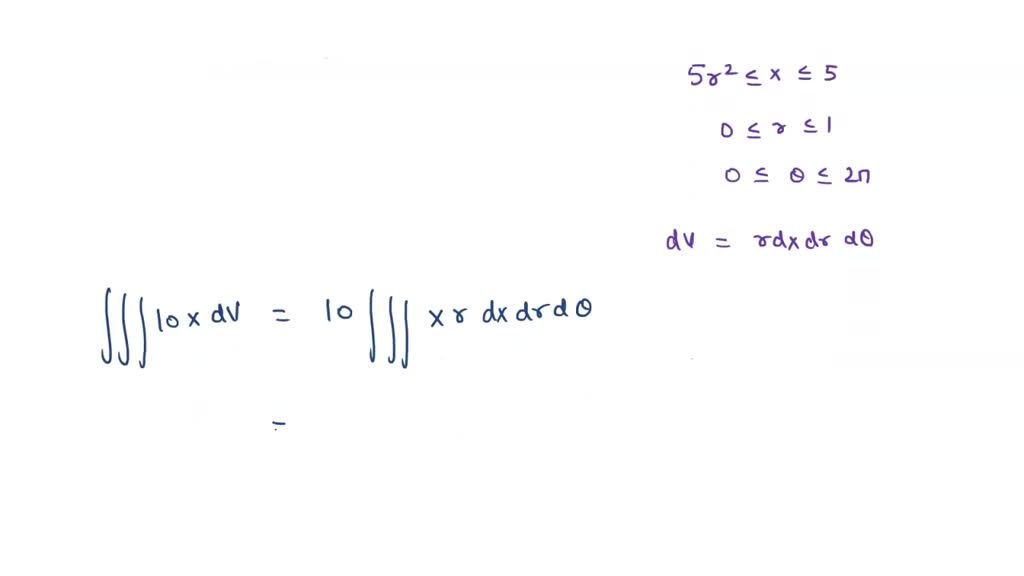 5r² ≤ x ≤ 5
0 ≤ r ≤ 1
0 ≤ θ ≤ 2π
dV = r dx dr dθ
∭ 10 x dV = 10 ∭ x r dx dr dθ
=